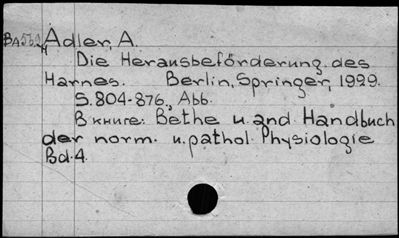 Adler, A.
Die Herausbeförderung des
Harnes. Berlin, Springer, 1929.
S. 804-876., Abb.
В книге: Bethe u. and Handbuch
der norm. u. pathol. Physiologie
Bd. 4.